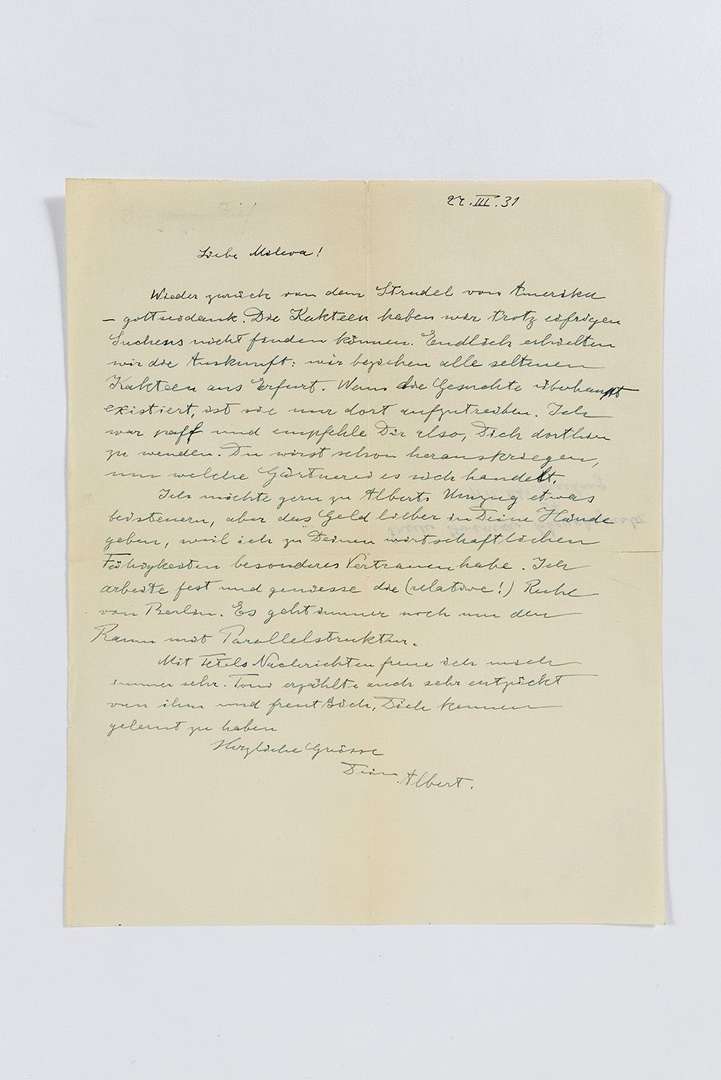 27. III. 31
Liebe Mileva!
Wieder zurück von dem Strudel von Amerika
– gottseidank. Die Kakteen haben wir trotz eifrigen
Suchens nicht finden können. Endlich erhielten
wir die Auskunft: wir beziehen alle seltenen
Kakteen aus Erfurt. Wenn die Gesuchte überhaupt
existiert, ist sie nur dort aufzutreiben. Ich
war paff und empfehle Dir also, Dich dorthin
zu wenden. Du wirst schon herauskriegen,
um welche Gärtnerei es sich handelt.
Ich möchte gern zu Alberts Umzug etwas
beisteuern, aber das Geld lieber in Deine Hände
geben, weil ich zu Deinen wirtschaftlichen
Fähigkeiten besonderes Vertrauen habe. Ich
arbeite fest und geniesse die (relative!) Ruhe
von Berlin. Es geht immer noch um den
Raum mit Parallelstruktur.
Mit Tetels Nachrichten freue ich mich
immer sehr. Toni erzählte auch sehr entzückt
von ihm und freut sich, Dich kennen
gelernt zu haben
Herzliche Grüsse
Dein Albert.